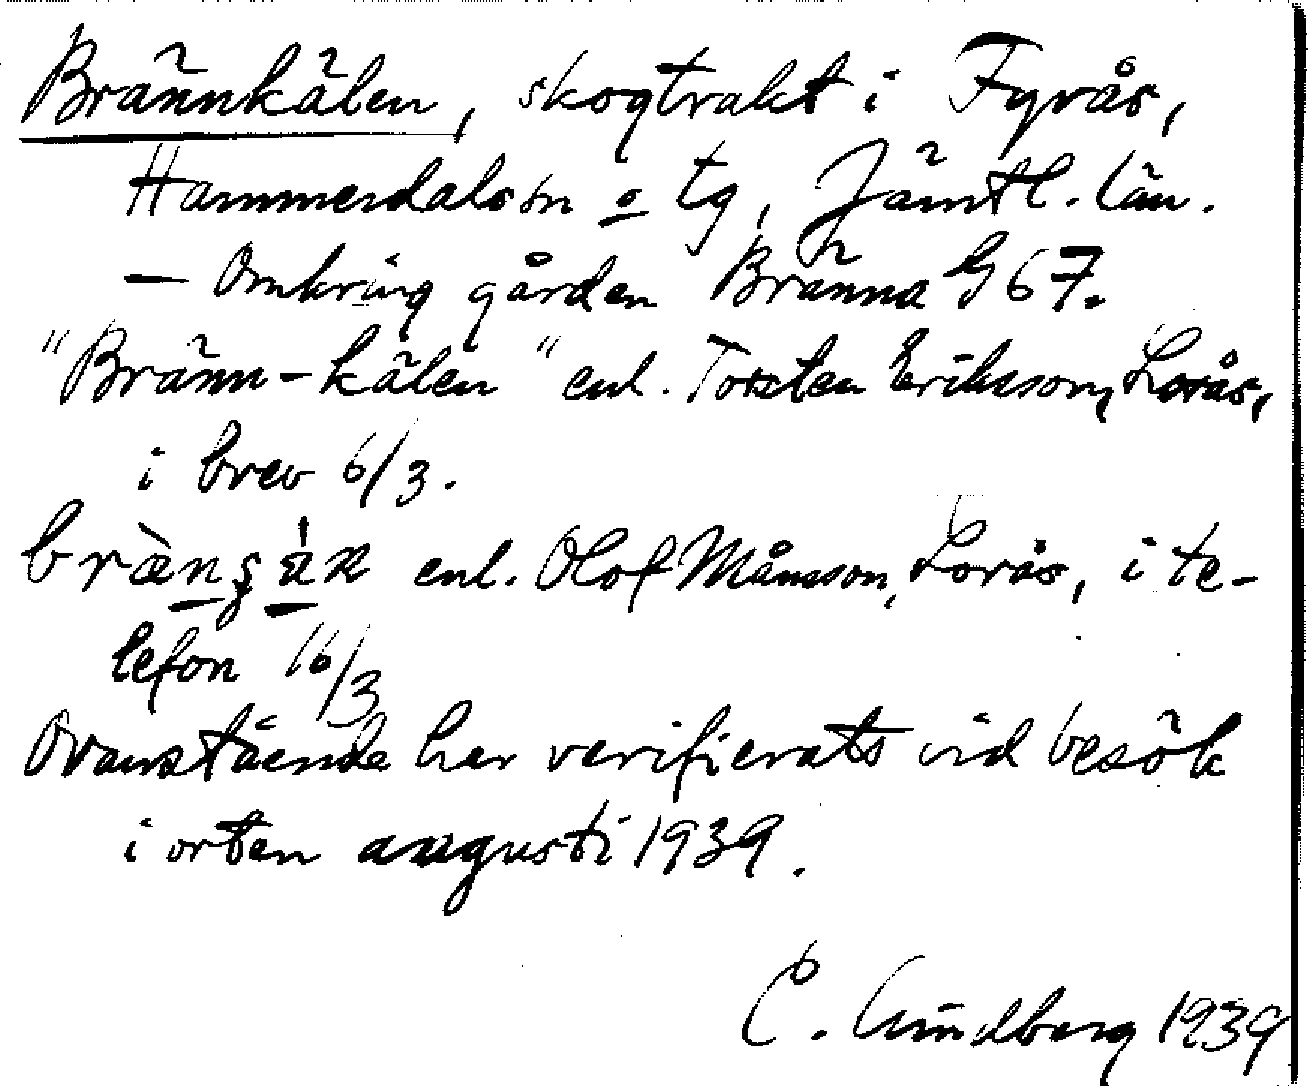 Brännkälen, skogtrakt i Fyrås,
Hammerdals sn o tg, Jämtl. län.
— Omkring gården Bränna G67.
"Bränn-kälen" enl. Torsten Eriksson, Lorås,
i brev 6/3.
enl. Olof Månsson, Lorås, i te-
lefon 16/3
Ovanstående har verifierats vid besök
i orten augusti 1939.
C. Lindberg 1939